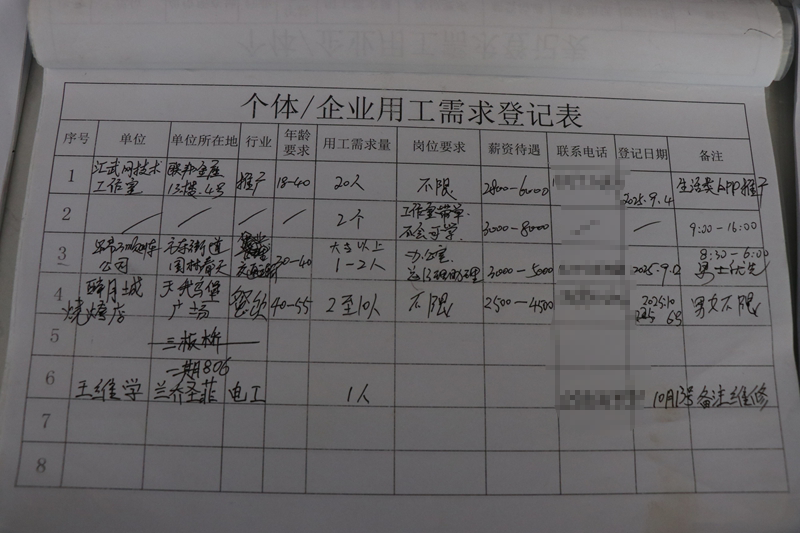 个体/企业用工需求登记表
序号 单位 单位所在地 行业 年龄要求 用工需求量 岗位要求 薪资待遇 联系电话 登记日期 备注
1 江武网技术工作室 联邦金座13楼.4号 推广 18-40 20人 不限 2800-6000 2025.9.4 生活类APP推广
2 / / / / 2个 工作室带单 不会可学 3000-8000 / / 9:00-16:00
3 公司 街道 30-40 大专以上 1-2人 办公室 总经理助理 3000-5000 2025.9. 8:30-6:00 男士优先
4 醉月土城烧烤店 广场 餐饮 40-55 2至10人 不限 2500-4500 2025.10 男女不限
5 三板桥
6 王维学 二期806 兰乔圣菲 电工 1人 10月13号 备注维修
7
8